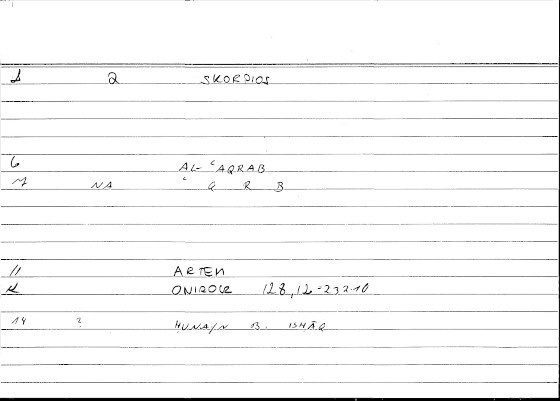 1 2 SKORPIOS
6 AL-ʿAQRAB
7 NA ʿ Q R B
11 ARTEM
12 ONIROCR 128,12-232.10
14 ? ḤUNAIN B. ISḤĀQ